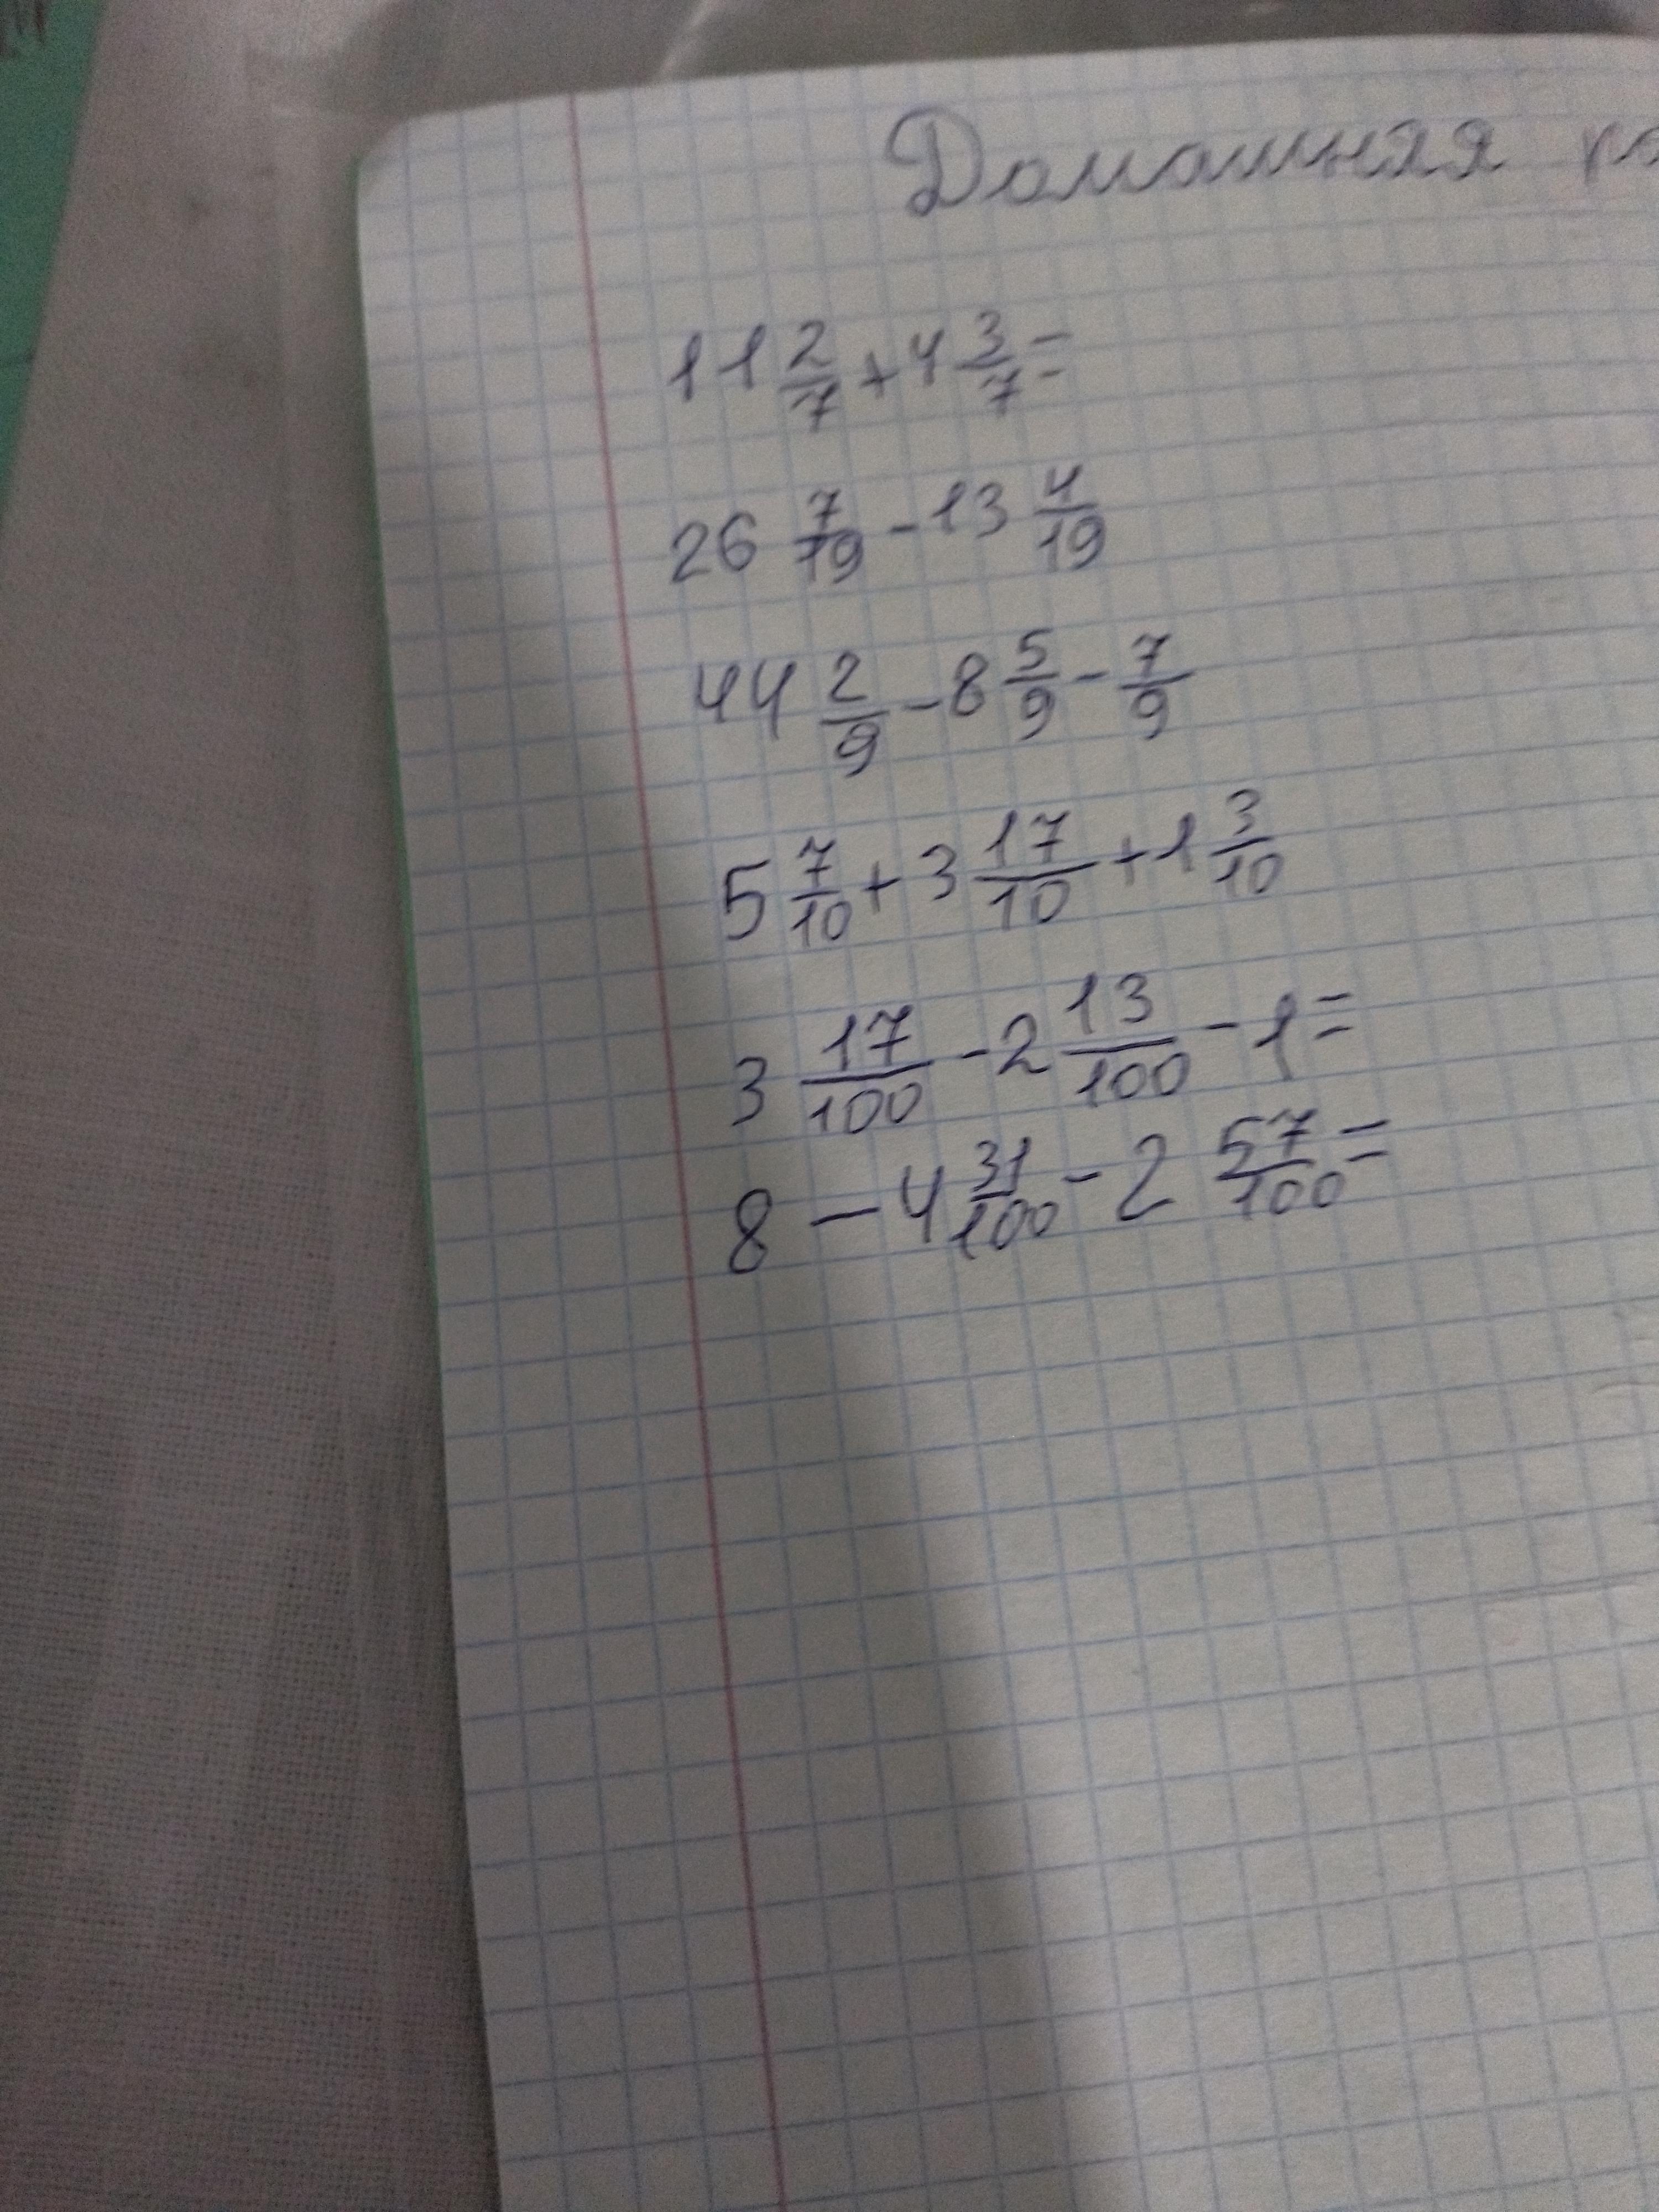 Домашняя
11 2/7 + 4 3/7 =
26 7/19 - 13 4/19
44 2/9 - 8 5/9 - 7/9
5 7/10 + 3 17/10 + 1 3/10
3 17/100 - 2 13/100 - 1 =
8 - 4 31/100 - 2 57/100 =